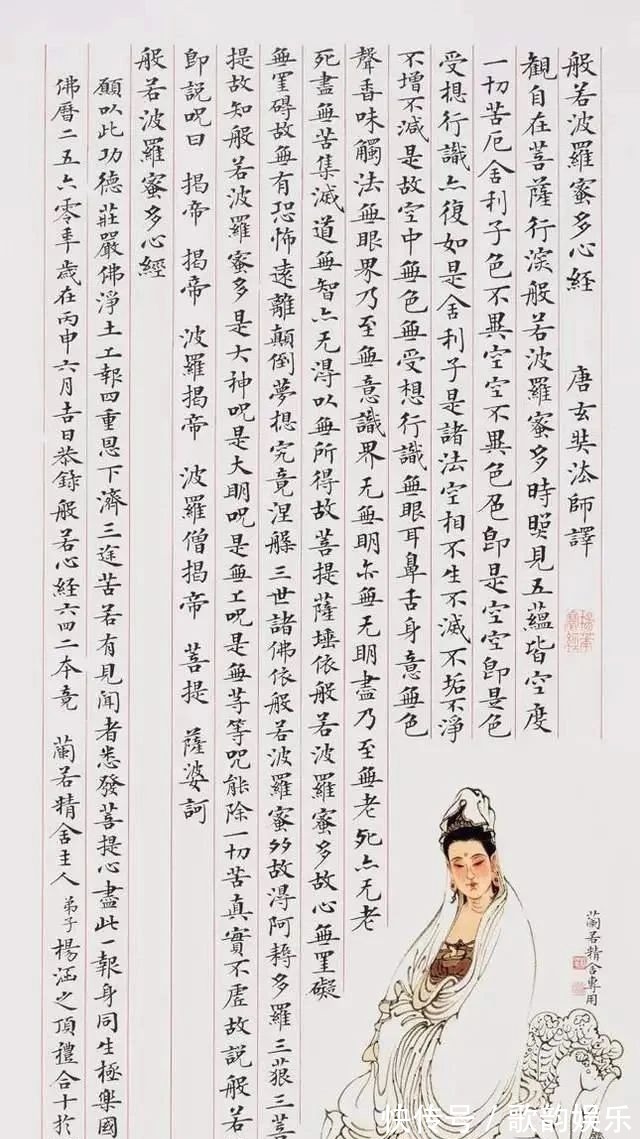 般若波羅蜜多心經　唐玄奘法師譯
觀自在菩薩行深般若波羅蜜多時照見五蘊皆空度
一切苦厄舍利子色不異空空不異色色即是空空即是色
受想行識亦復如是舍利子是諸法空相不生不滅不垢不淨
不增不減是故空中無色無受想行識無眼耳鼻舌身意無色
聲香味觸法無眼界乃至無意識界无無明亦無无明盡乃至無老死亦无老
死盡無苦集滅道無智亦无得以無所得故菩提薩埵依般若波羅蜜多故心無罣礙
無罣碍故無有恐怖遠離顛倒夢想究竟涅槃三世諸佛依般若波羅蜜多故得阿耨多羅三藐三菩
提故知般若波羅蜜多是大神呪是大明呪是無上呪是無等等咒能除一切苦真實不虛故説般若
即説呪曰　揭帝　揭帝　波羅揭帝　波羅僧揭帝　菩提　薩婆訶
般若波羅蜜多心經
願以此功德莊嚴佛淨土上報四重恩下濟三途苦若有見聞者悉發菩提心盡此一報身同生極樂國
佛曆二五六零年歲在丙申六月吉日恭錄般若心經六四二本竟　蘭若精舍主人　弟子楊涵之頂禮合十於
蘭若精舍專用
快传号/歌韵娱乐